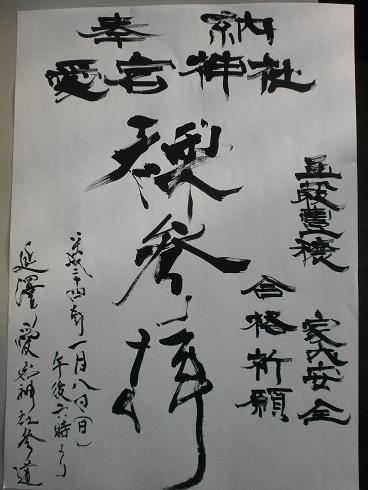 奉納
愛宕神社
五穀豊穣
家内安全
合格祈願
裸参拝
平成二十四年一月八日(日)
午後六時より
延澤愛宕神社参道